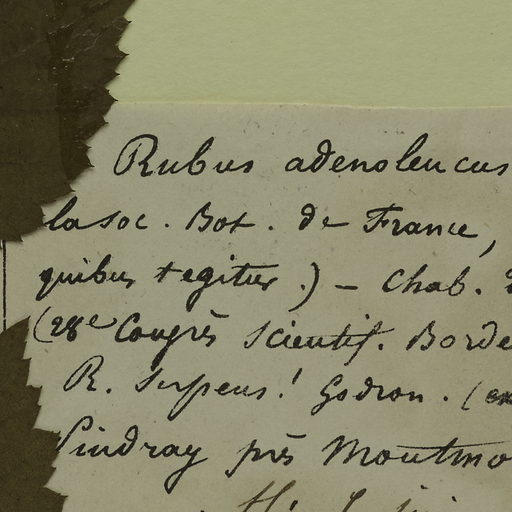 Rubus adenoleucus
la soc. Bot. de France,
quibus tegitur.) – Chab.
(28e Congrès Scientif. Borde
R. Serpens! Godron. (
Pindray près Montmo